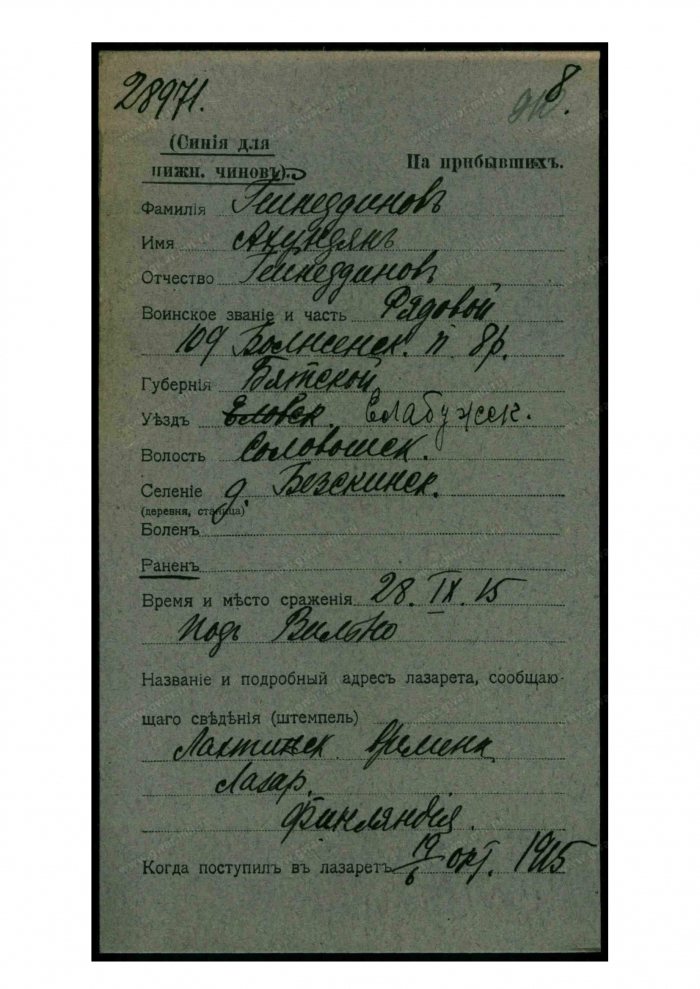 28971.
8.
(Синія для
нижн. чиновъ).
На прибывшихъ.
Фамилія Гинеддиновъ
Имя Ахундянъ
Отчество Гинеддиновъ
Воинское званіе и часть Рядовой
109 Волжсенск. п 8р.
Губернія Вятской
Уѣздъ Еловск. Елабужск.
Волость
Селеніе д. Безскинск.
(деревня, станица)
Боленъ
Раненъ
Время и мѣсто сраженія 28. IX. 15
подъ Вильно
Названіе и подробный адресъ лазарета, сообщаю-
щаго свѣдѣнія (штемпель)
Лахтинск времен
Лазар.
Финляндія.
Когда поступилъ въ лазаретъ 19/6 окт. 1915